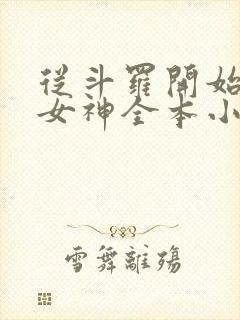 從斗羅開始
女神全本小
雪舞離殤